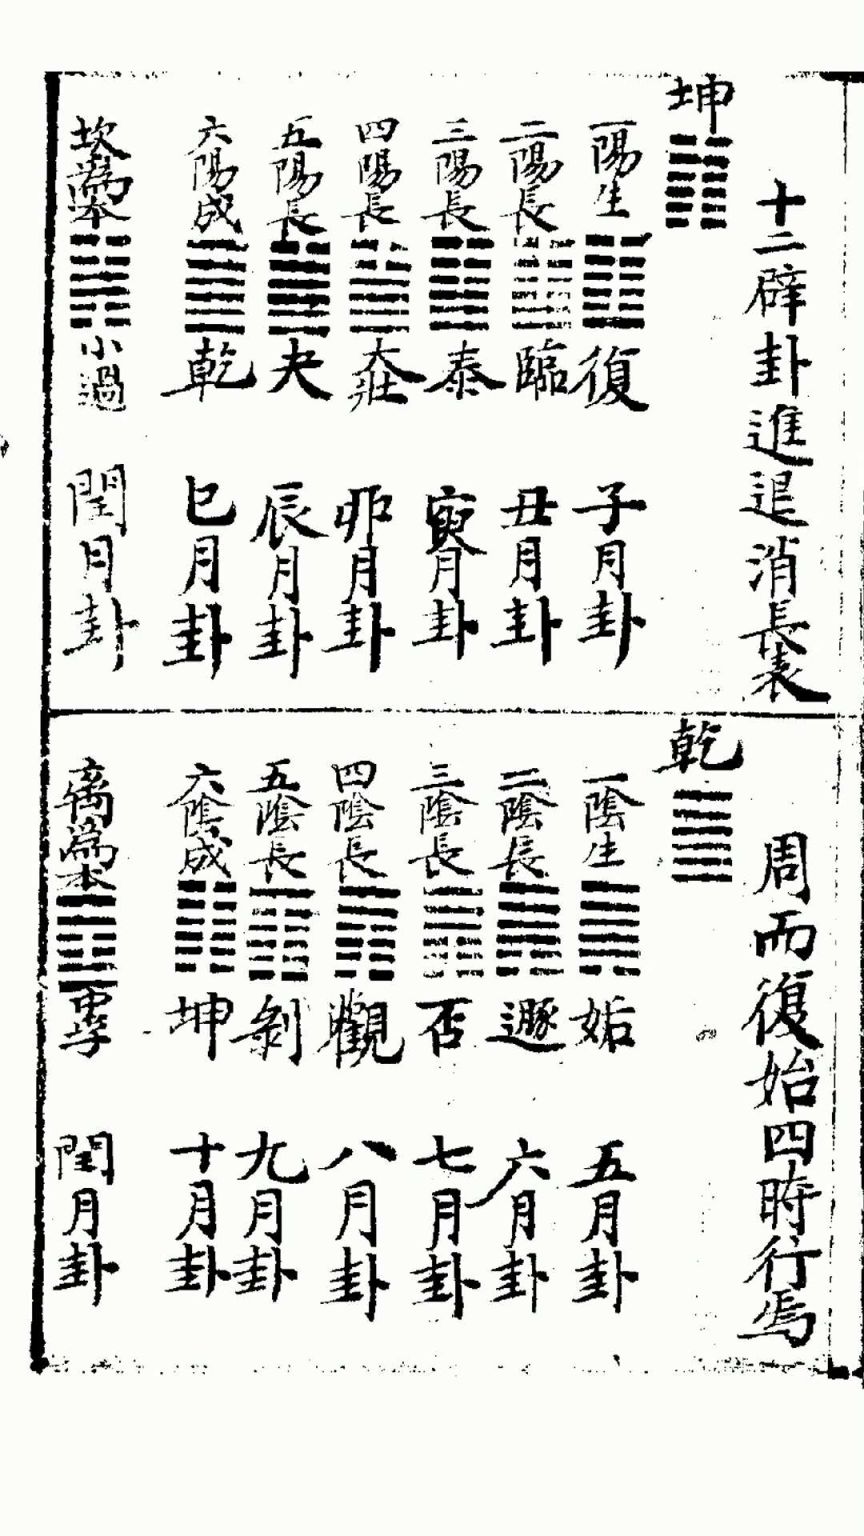 十二辟卦進退消長表
坤
一陽生 復 子月卦
二陽長 臨 丑月卦
三陽長 泰 寅月卦
四陽長 大壯 卯月卦
五陽長 夬 辰月卦
六陽成 乾 巳月卦
坎為本 小過 閏月卦
周而復始四時行焉
乾
一陰生 姤 五月卦
二陰長 遯 六月卦
三陰長 否 七月卦
四陰長 觀 八月卦
五陰長 剝 九月卦
六陰成 坤 十月卦
离為本 中孚 閏月卦